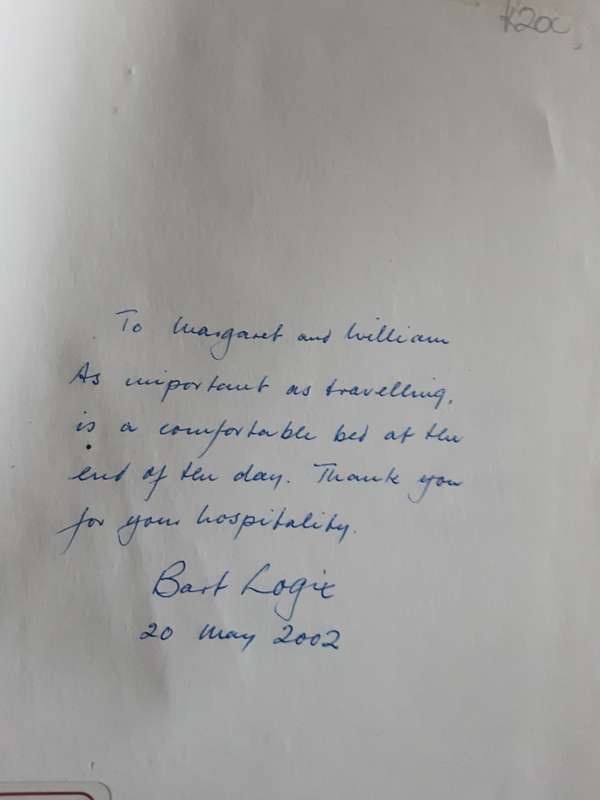 To Margaret and William
As important as travelling,
is a comfortable bed at the
end of the day. Thank you
for your hospitality.
Bart Logie
20 May 2002